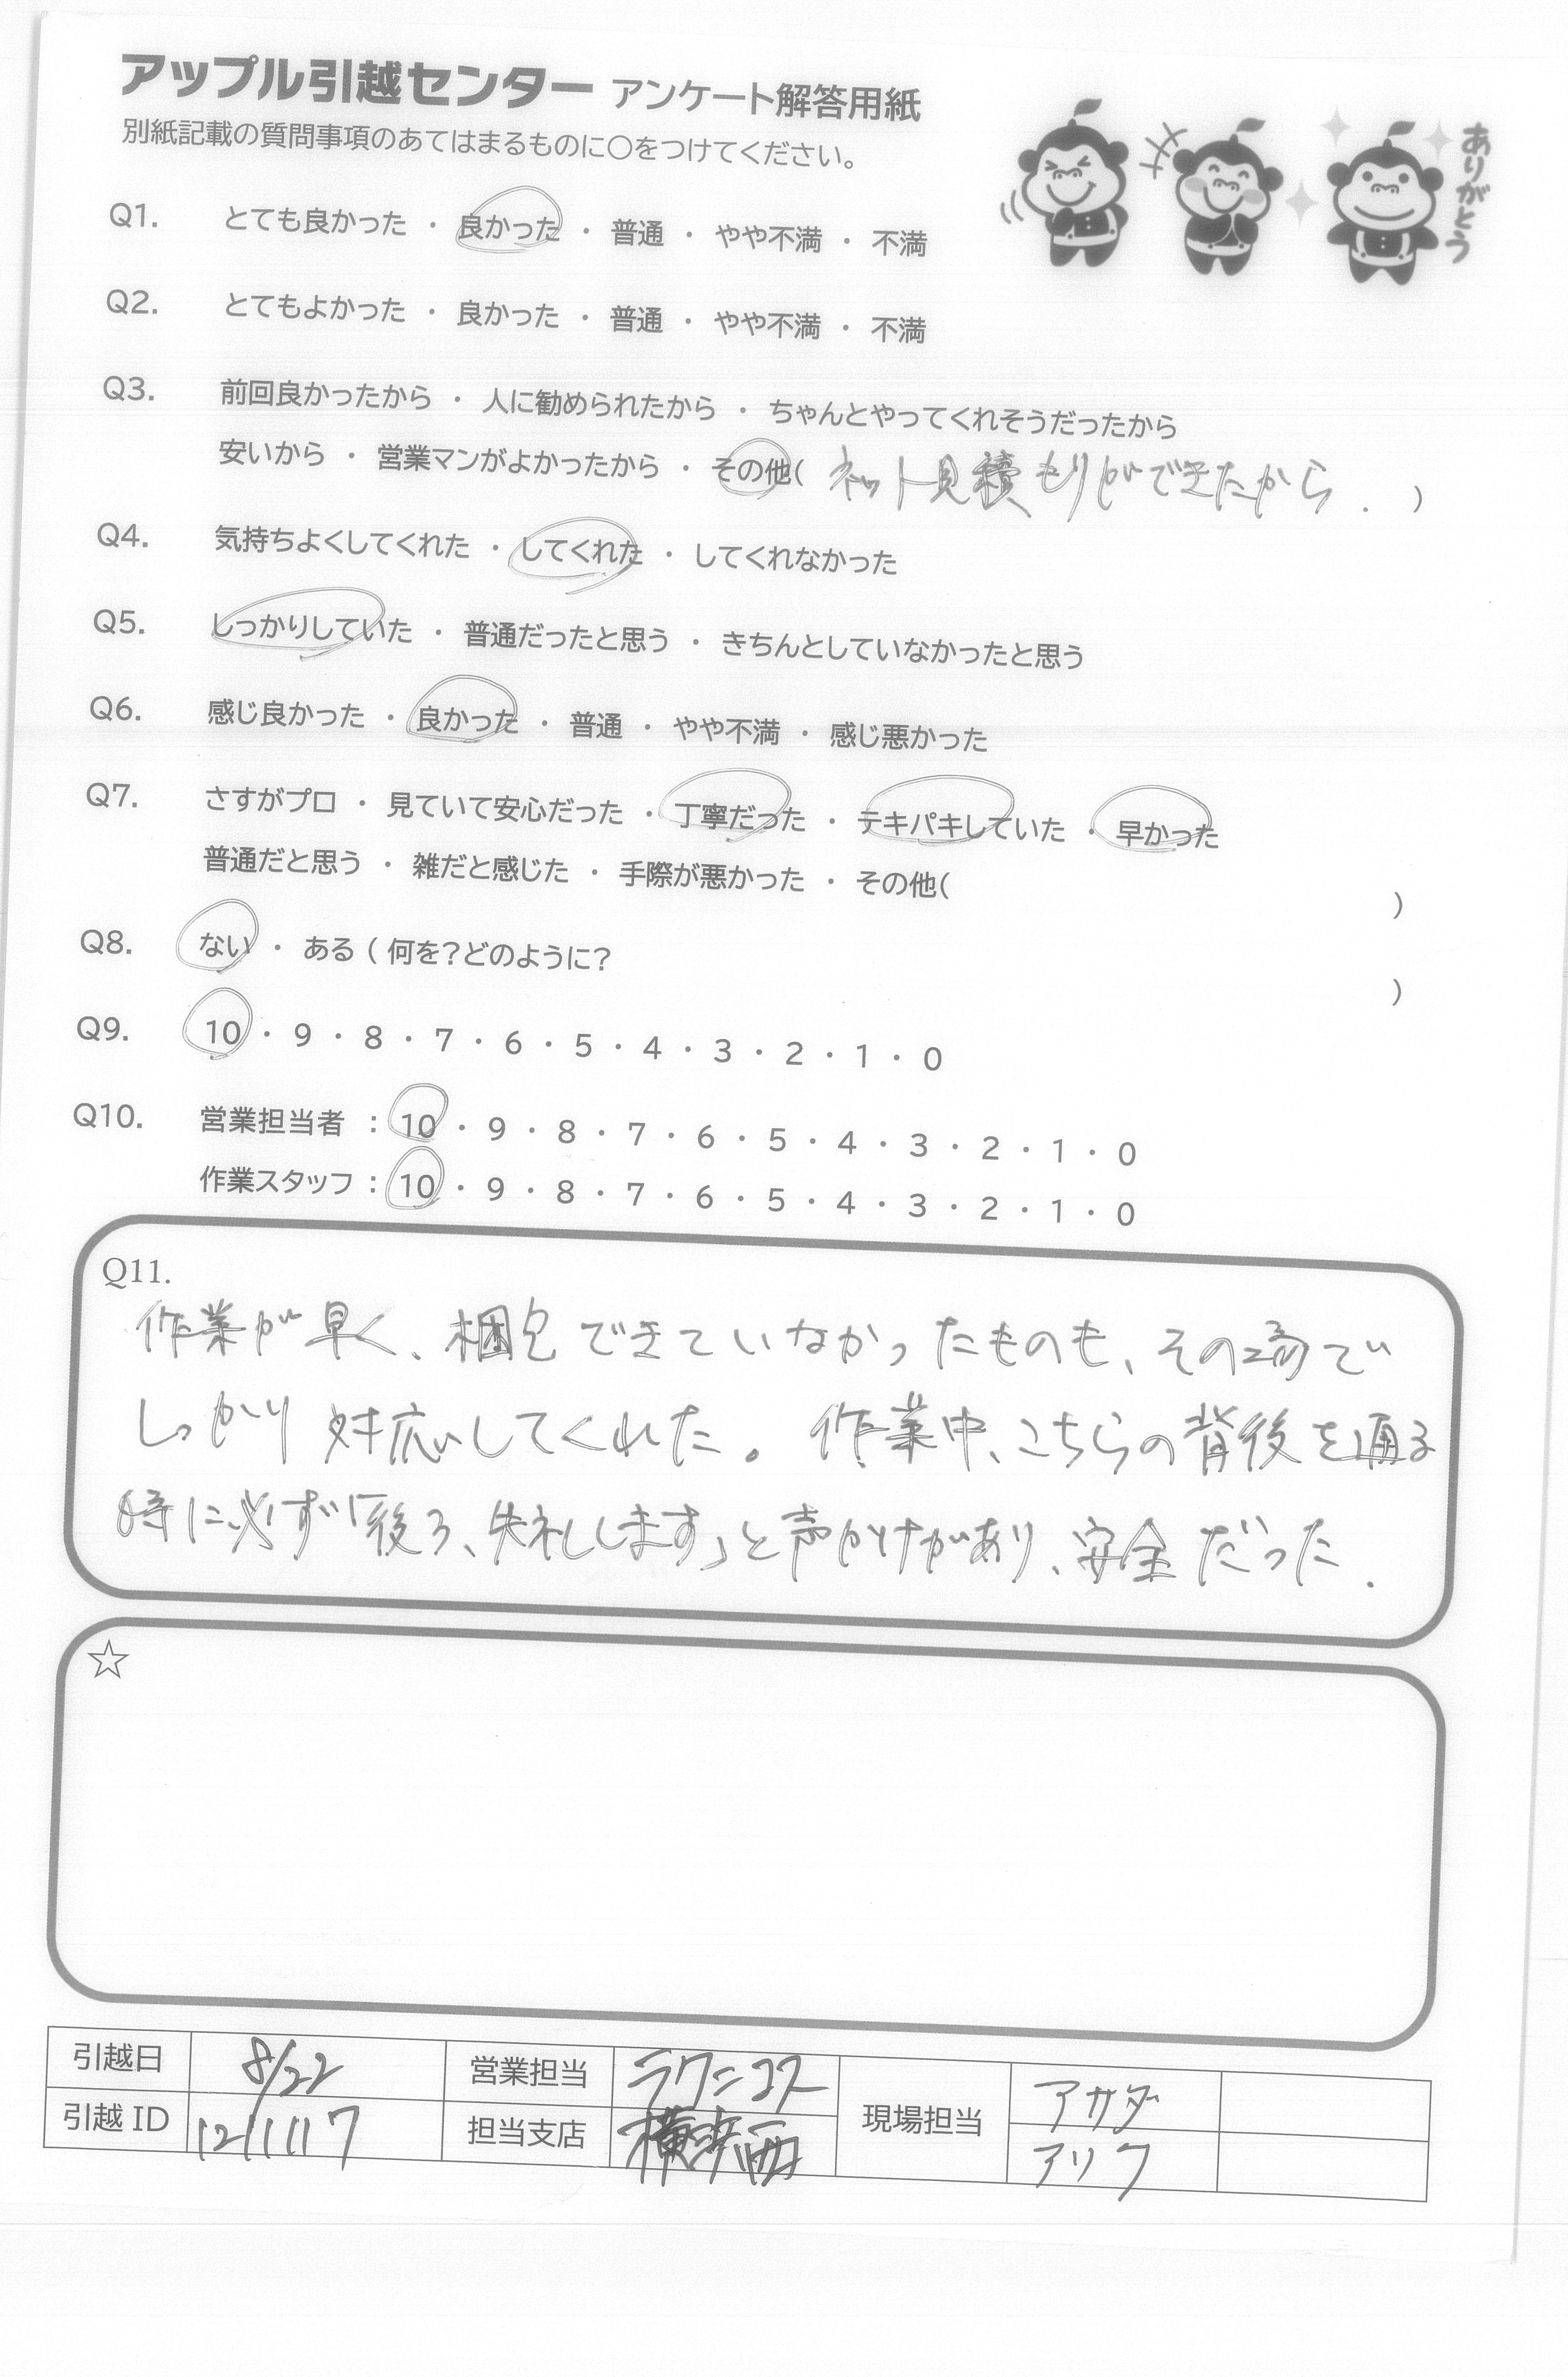 アップル引越センター アンケート解答用紙
別紙記載の質問事項のあてはまるものに○をつけてください。
ありがとう
Q1. とても良かった ・ 良かった ・ 普通 ・ やや不満 ・ 不満
Q2. とてもよかった ・ 良かった ・ 普通 ・ やや不満 ・ 不満
Q3. 前回良かったから ・ 人に勧められたから ・ ちゃんとやってくれそうだったから
安いから ・ 営業マンがよかったから ・ その他( ネット見積もりができたから. )
Q4. 気持ちよくしてくれた ・ してくれた ・ してくれなかった
Q5. しっかりしていた ・ 普通だったと思う ・ きちんとしていなかったと思う
Q6. 感じ良かった ・ 良かった ・ 普通 ・ やや不満 ・ 感じ悪かった
Q7. さすがプロ ・ 見ていて安心だった ・ 丁寧だった ・ テキパキしていた ・ 早かった
普通だと思う ・ 雑だと感じた ・ 手際が悪かった ・ その他( )
Q8. ない ・ ある ( 何を?どのように? )
Q9. 10 ・ 9 ・ 8 ・ 7 ・ 6 ・ 5 ・ 4 ・ 3 ・ 2 ・ 1 ・ 0
Q10. 営業担当者 : 10 ・ 9 ・ 8 ・ 7 ・ 6 ・ 5 ・ 4 ・ 3 ・ 2 ・ 1 ・ 0
作業スタッフ : 10 ・ 9 ・ 8 ・ 7 ・ 6 ・ 5 ・ 4 ・ 3 ・ 2 ・ 1 ・ 0
Q11.
作業が早く、梱包できていなかったものも、その場で
しっかり対応してくれた。作業中、こちらの背後を通る
時に必ず「後ろ、失礼します」と声かけがあり、安全だった.
☆
引越日 8/22 営業担当 ラクニコス 現場担当 アサダ
引越ID 1211117 担当支店 横浜西 アリフ